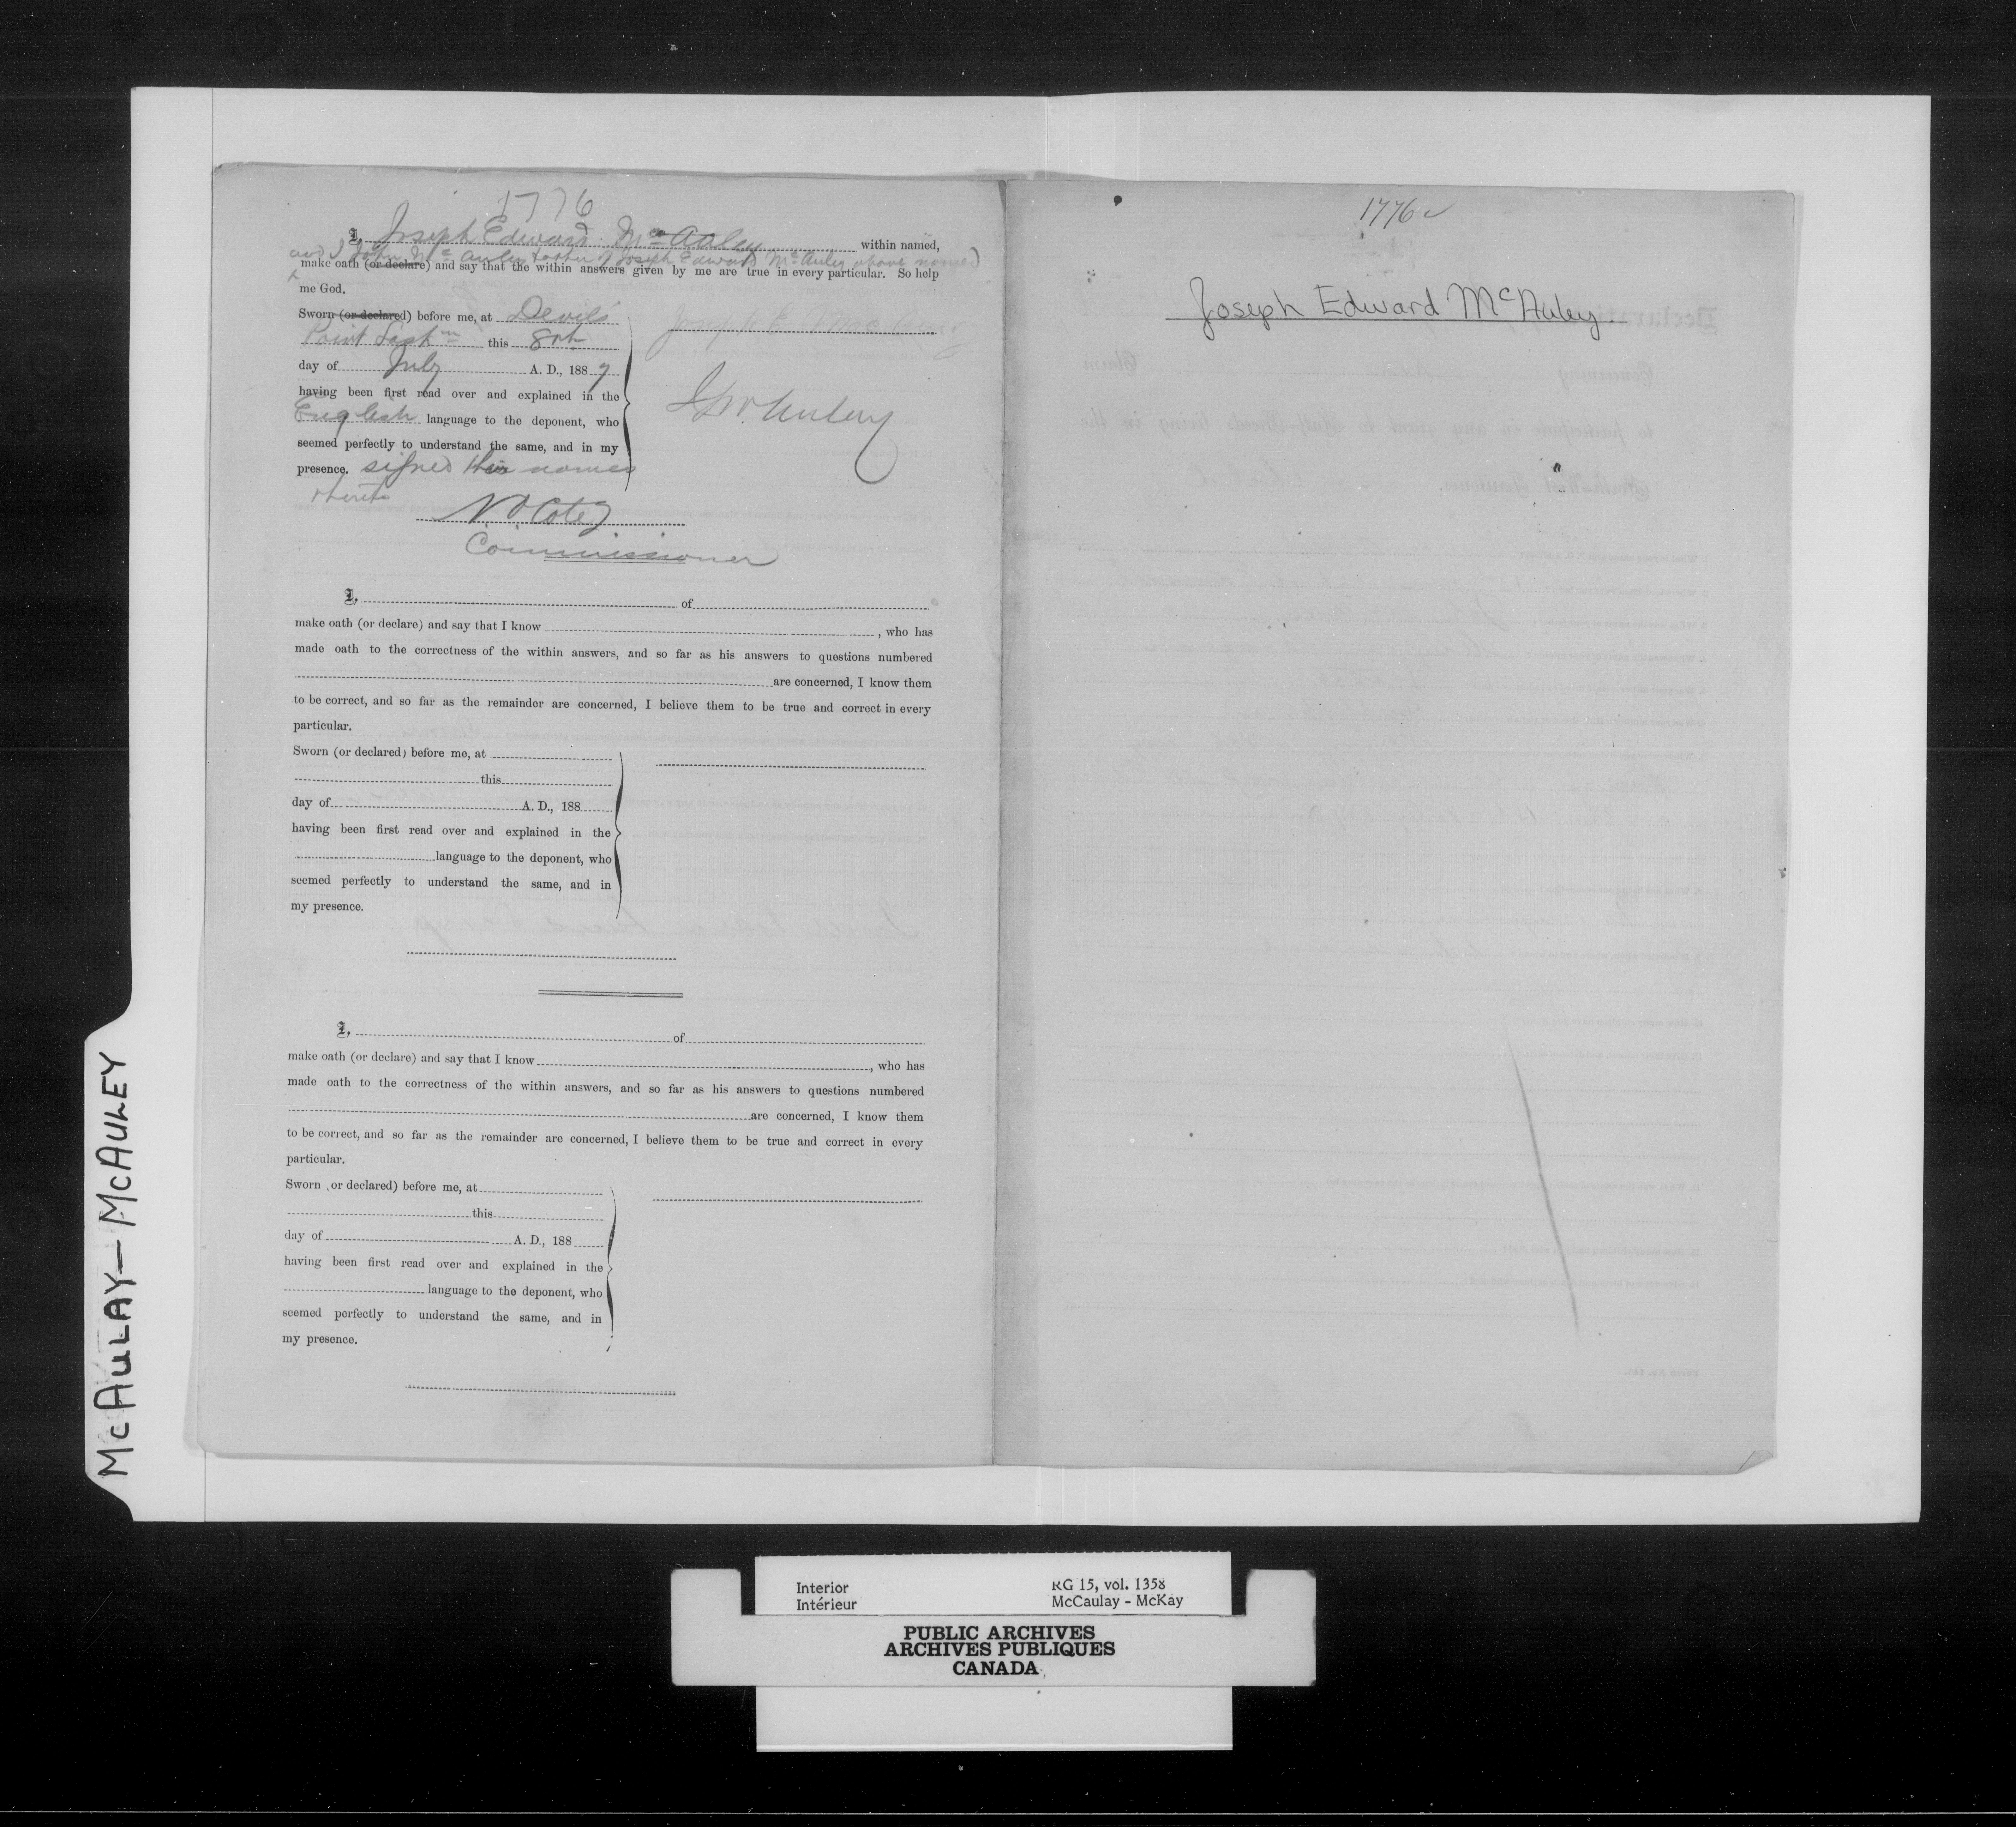 1776
I, Joseph Edward McAuley within named,
and I John McAuley father of Joseph Edward McAuley above named
make oath (or declare) and say that the within answers given by me are true in every particular. So help
me God.
Sworn (or declared) before me, at Devil's
Point Sask this 8th
day of July A. D., 1887
having been first read over and explained in the
English language to the deponent, who
seemed perfectly to understand the same, and in my
presence. signed their names
thereto
Joseph E
McAuley
N O Coté
Commissioner
I, of
make oath (or declare) and say that I know , who has
made oath to the correctness of the within answers, and so far as his answers to questions numbered
are concerned, I know them
to be correct, and so far as the remainder are concerned, I believe them to be true and correct in every
particular.
Sworn (or declared) before me, at
this
day of A. D., 188
having been first read over and explained in the
language to the deponent, who
seemed perfectly to understand the same, and in
my presence.
I, of
make oath (or declare) and say that I know , who has
made oath to the correctness of the within answers, and so far as his answers to questions numbered
are concerned, I know them
to be correct, and so far as the remainder are concerned, I believe them to be true and correct in every
particular.
Sworn (or declared) before me, at
this
day of A. D., 188
having been first read over and explained in the
language to the deponent, who
seemed perfectly to understand the same, and in
my presence.
1776
Joseph Edward McAuley
McAULAY—McAULEY
Interior
Intérieur
RG 15, vol. 1358
McCaulay - McKay
PUBLIC ARCHIVES
ARCHIVES PUBLIQUES
CANADA